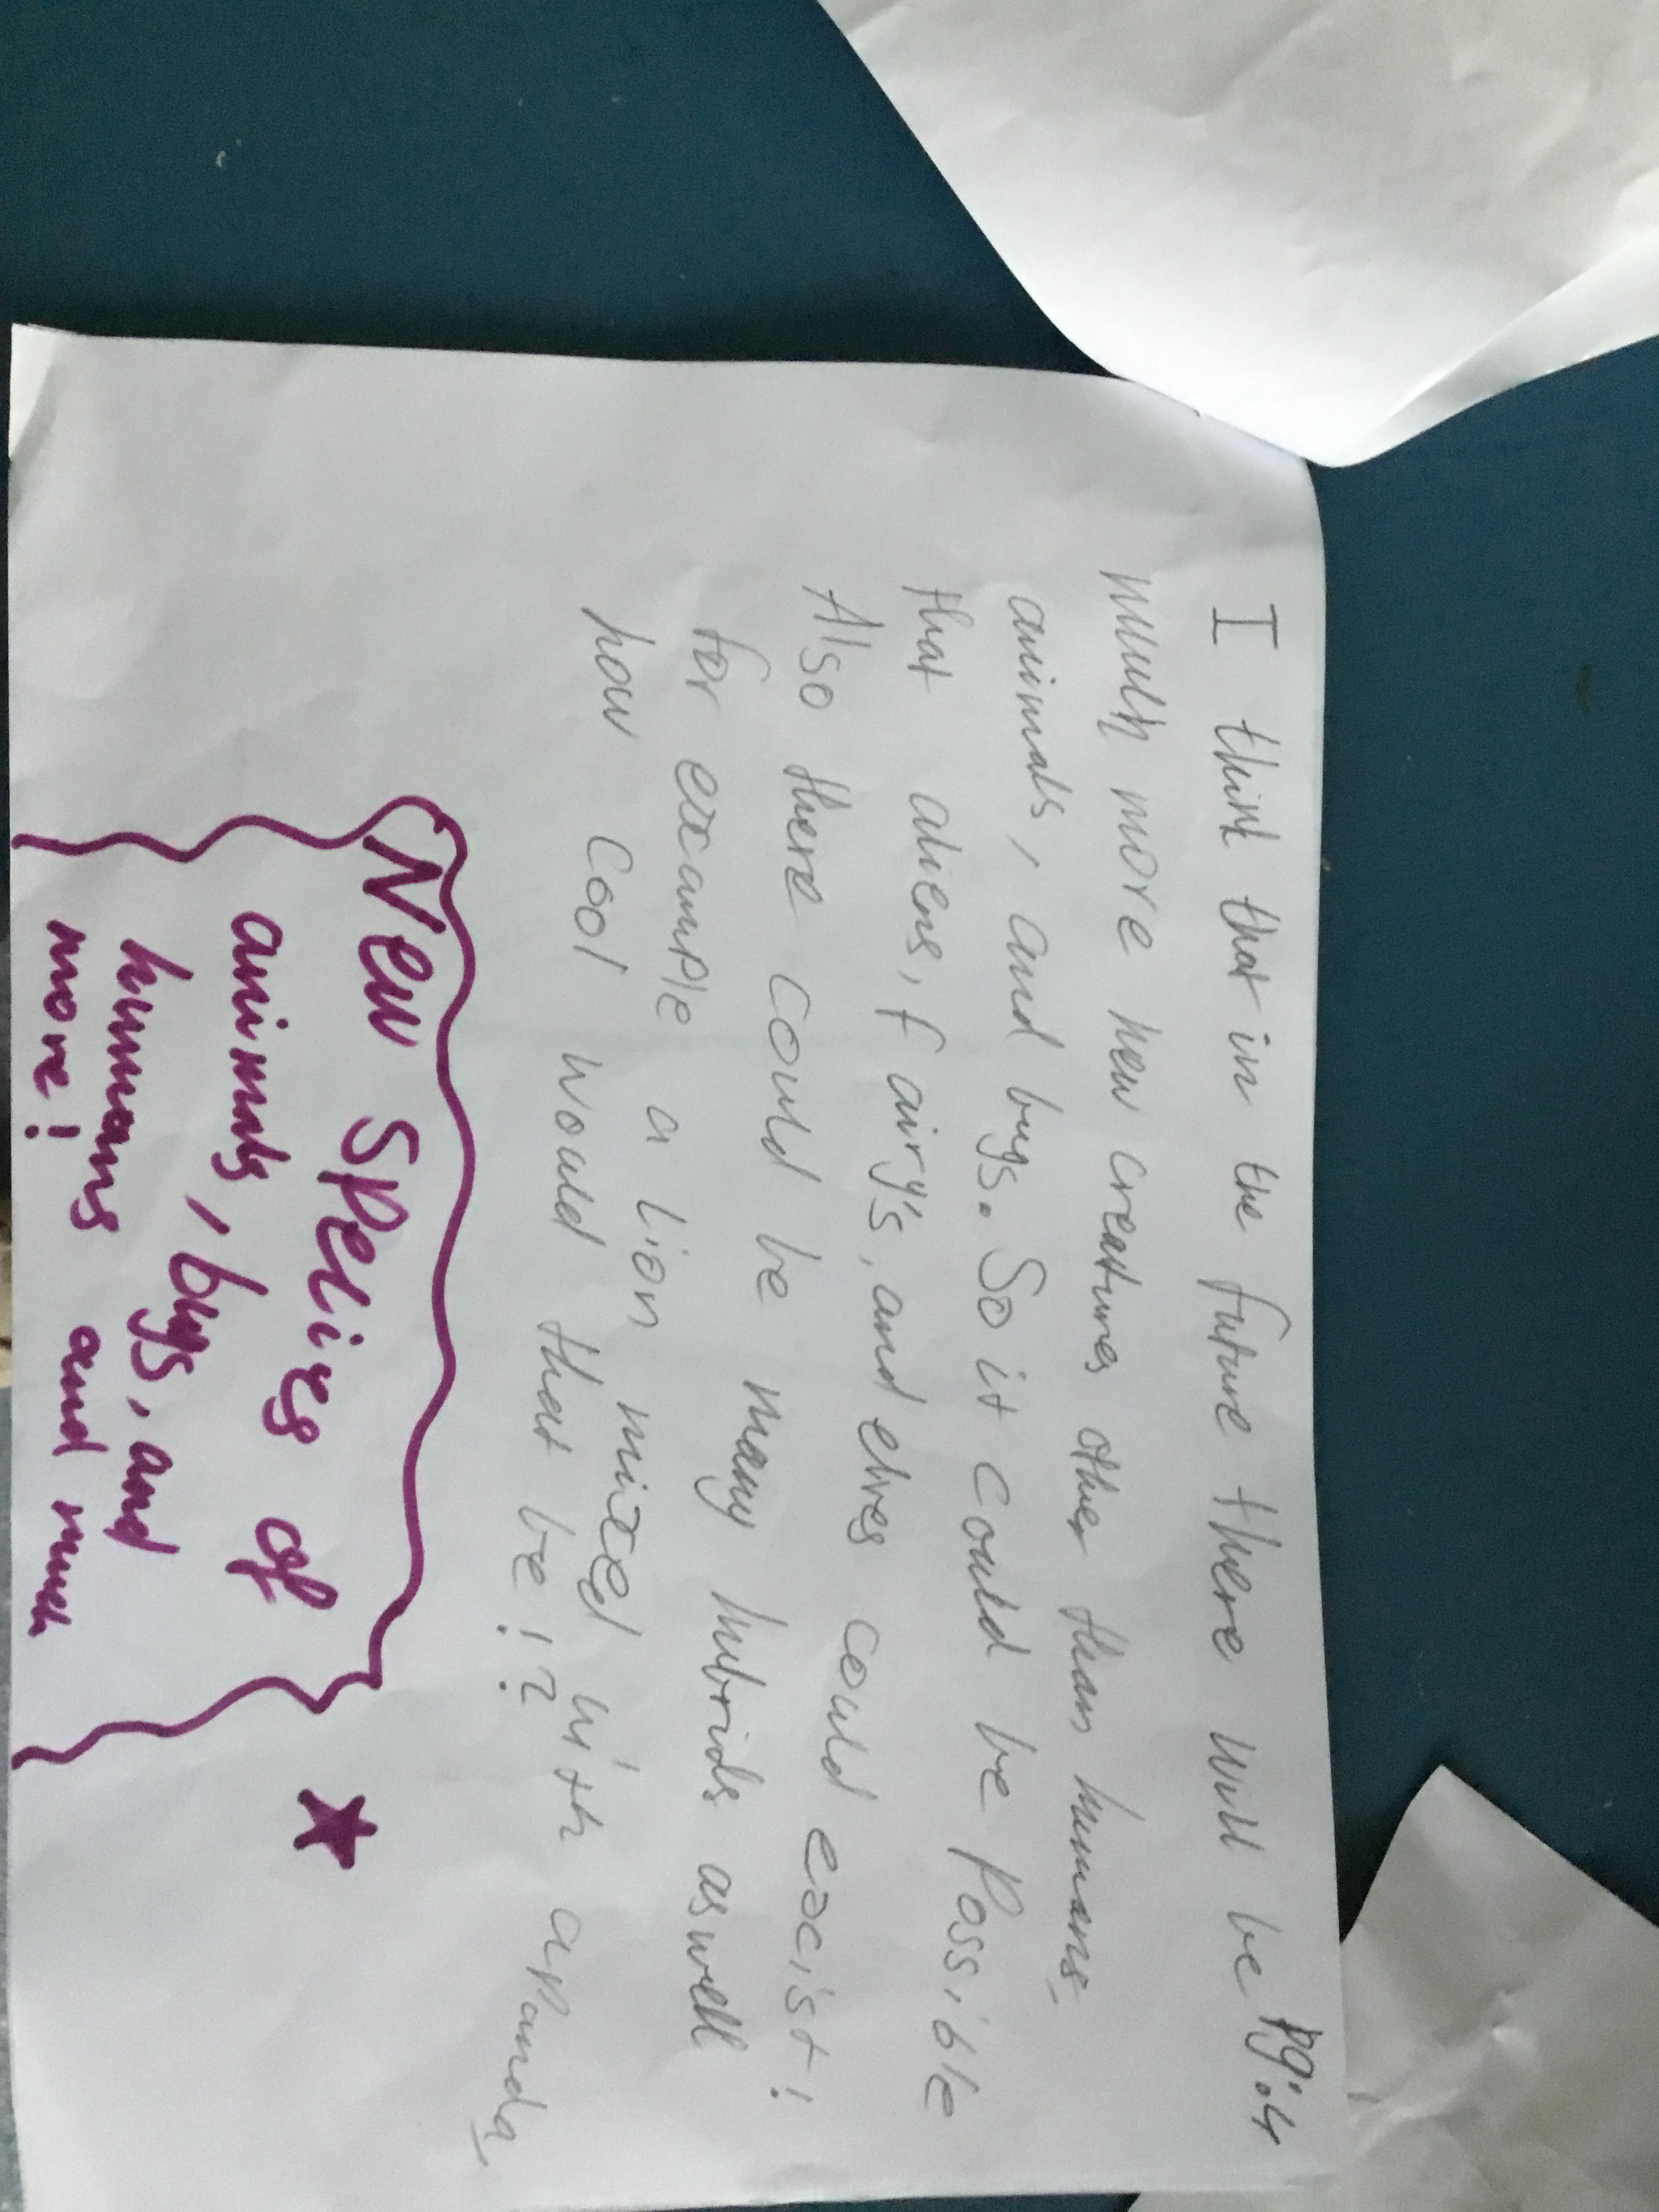 pg:4
I think that in the future there will be
much more new creatures other than humans,
animals, and bugs. So it could be Possible
that aliens, fairy's, and elves could excist!
Also there could be many hubrids aswell
for example a lion mixed with a Panda,
how cool would that be!?
New Species of
animals, bugs, and
hummans and much
more!